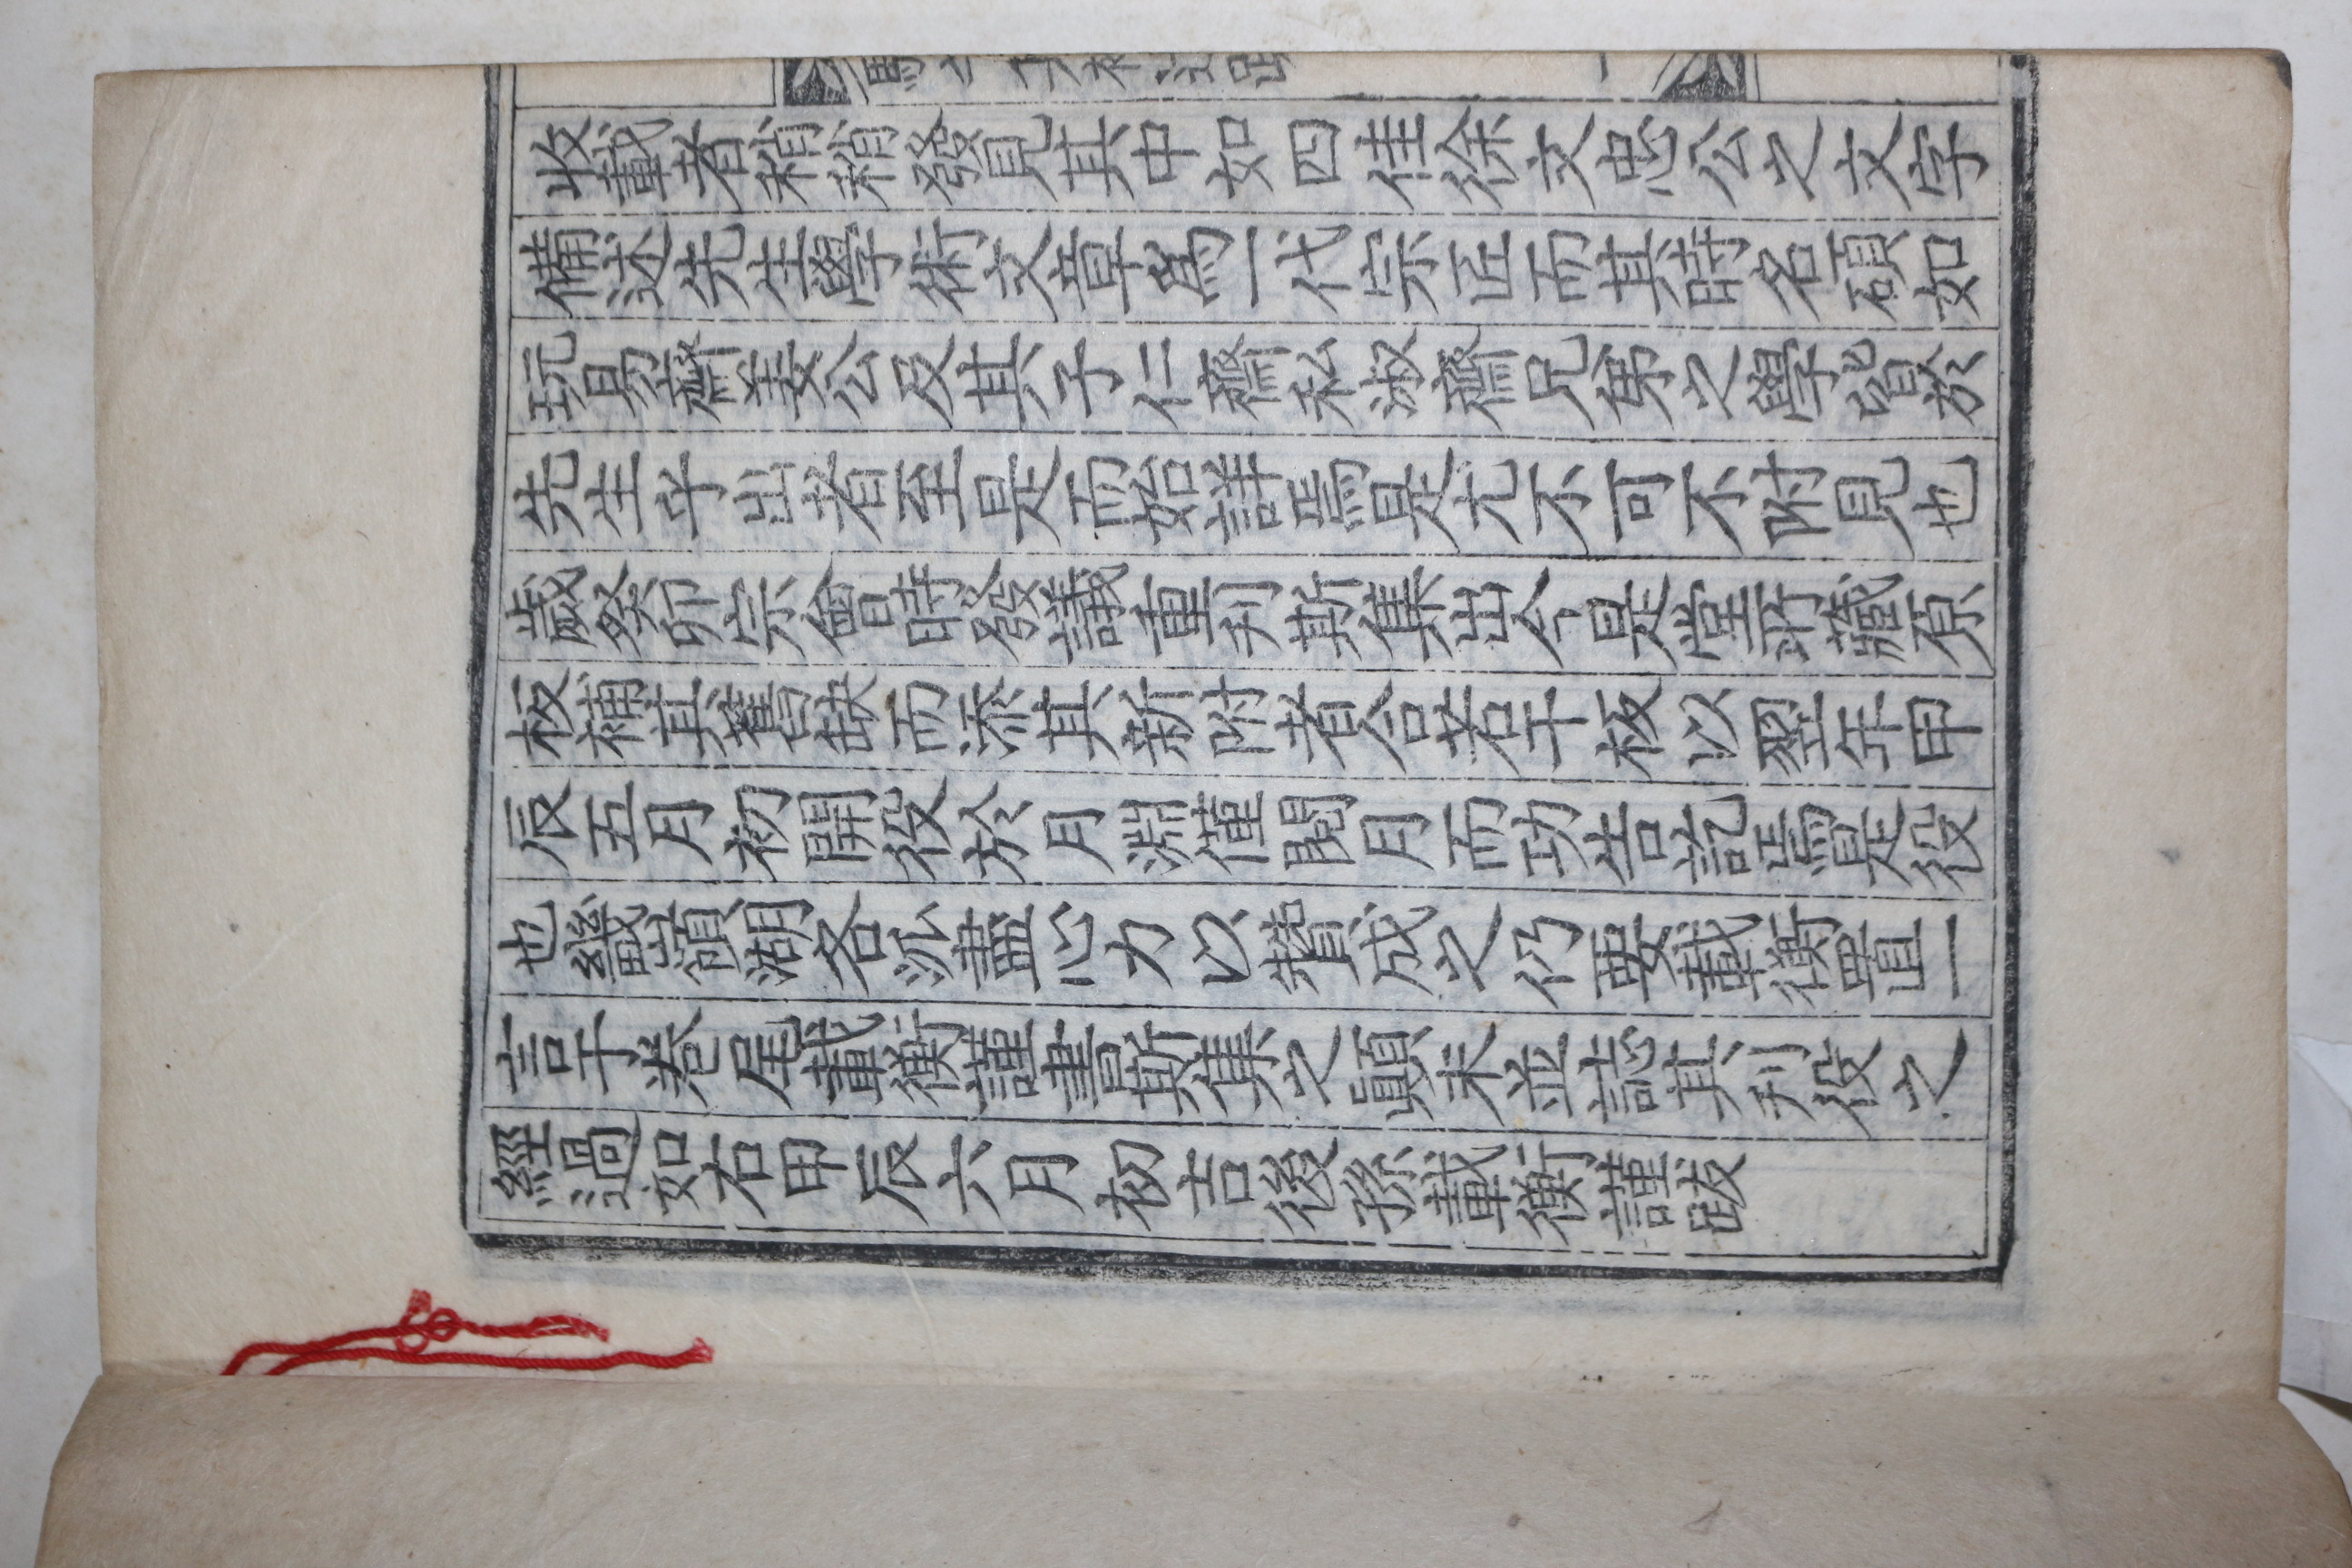 收載者稍稍發見其中如四佳徐文忠公之文字
備述先生學術文章爲一代宗匠而其時名碩如
玩易齋姜公及其子仁齋私淑齋兄弟之學皆於
先生乎出者至是而始詳焉是尤不可不附見也
歲癸卯宗會時發議重刊斯集出今是堂所藏原
板補其舊缺而添其新附者合若干板以翌年甲
辰五月初開役於月淵僅閱月而功告訖焉是役
也纖嶺湖各派盡心力以贊成之仍要載衡置一
言于卷尾載衡謹書斯集之顚末並誌其刊役之
經過如右甲辰六月初吉後孫載衡謹跋